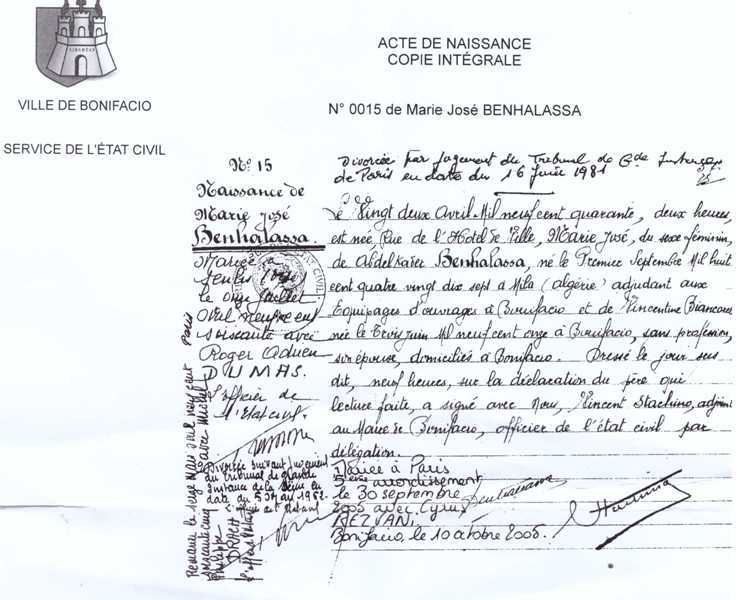 LIBERTAS
VILLE DE BONIFACIO
SERVICE DE L'ÉTAT CIVIL
ACTE DE NAISSANCE
COPIE INTÉGRALE
N° 0015 de Marie José BENHALASSA
N° 15
Naissance de
Marie José
Benhalassa.
Mariée à
Senlis
le onze juillet
mil neuf cent
soixante avec
Roger
DUMAS.
L'officier de
l'Etat civil.
Divorcée suivant jugement
du tribunal de grande
instance de la Seine en
date du 5 1962
Remariée le seize Mars mil neuf cent
soixante cinq à Paris avec Michel
Philippe
DRACH
l'officier
Divorcée par jugement du Tribunal de Gde Instance
de Paris en date du 16 juin 1981
Le Vingt deux Avril Mil neuf cent quarante, deux heures,
est née, Rue de l'Hotel de Ville, Marie José, du sexe féminin,
de Abdelkader Benhalassa, né le Premier Septembre Mil huit
cent quatre vingt dix sept à Mila (algérie) adjudant aux
Equipages d'ouvrages à Bonifacio et de Vincentine Biancarelli
née le Trois juin Mil neuf cent onze à Bonifacio, sans profession,
son épouse, domiciliés à Bonifacio. Dressé le jour sus
dit, neuf heures, sur la déclaration du père qui
lecture faite, a signé avec Nous, Vincent Stachino, adjoint
au Maire de Bonifacio, officier de l'état civil par
délégation.
Mariée à Paris
5ème arrondissement
le 30 septembre
2005 avec Cyrus
REZVANI
Bonifacio, le 10 octobre 2005.